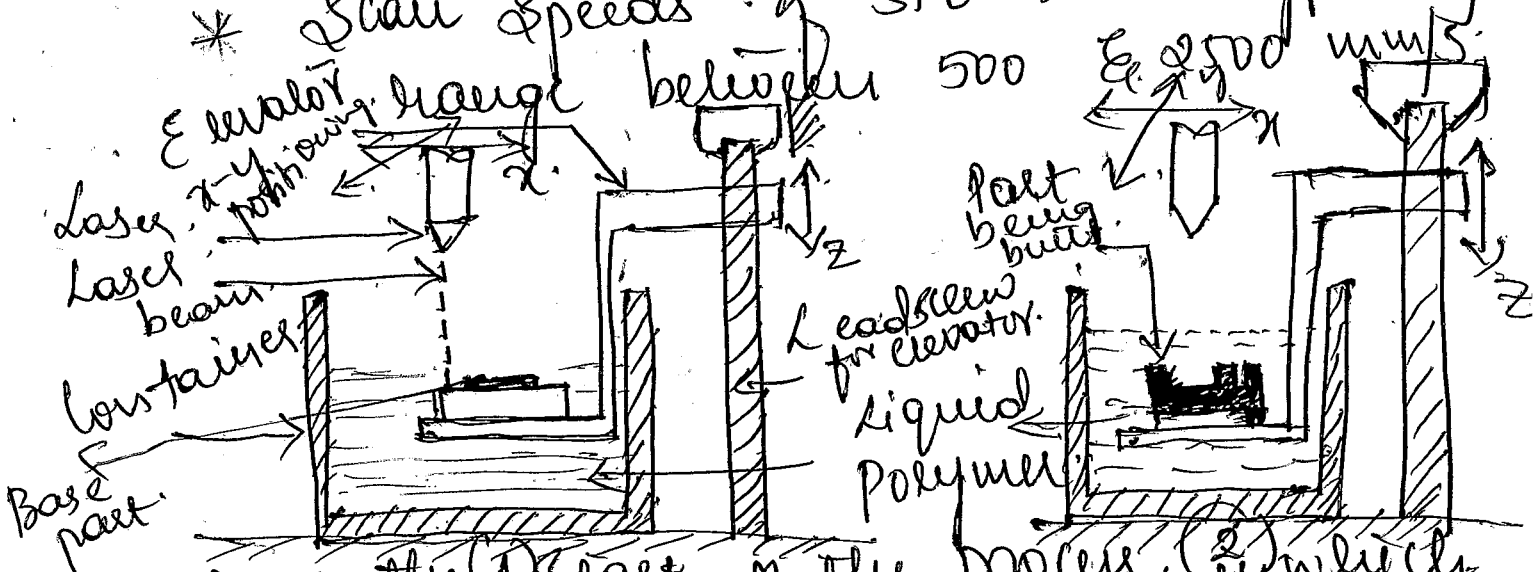 * Scan Speeds
range between 500 & 2500 mm/s.
Elevator
x-y
positioning.
y
x.
x
Laser.
Laser
beam.
Container
Base
part.
z
Leadscrew
for elevator.
Liquid
Polymer
Part
being
built.
z
the (1) start of the process. (2) which